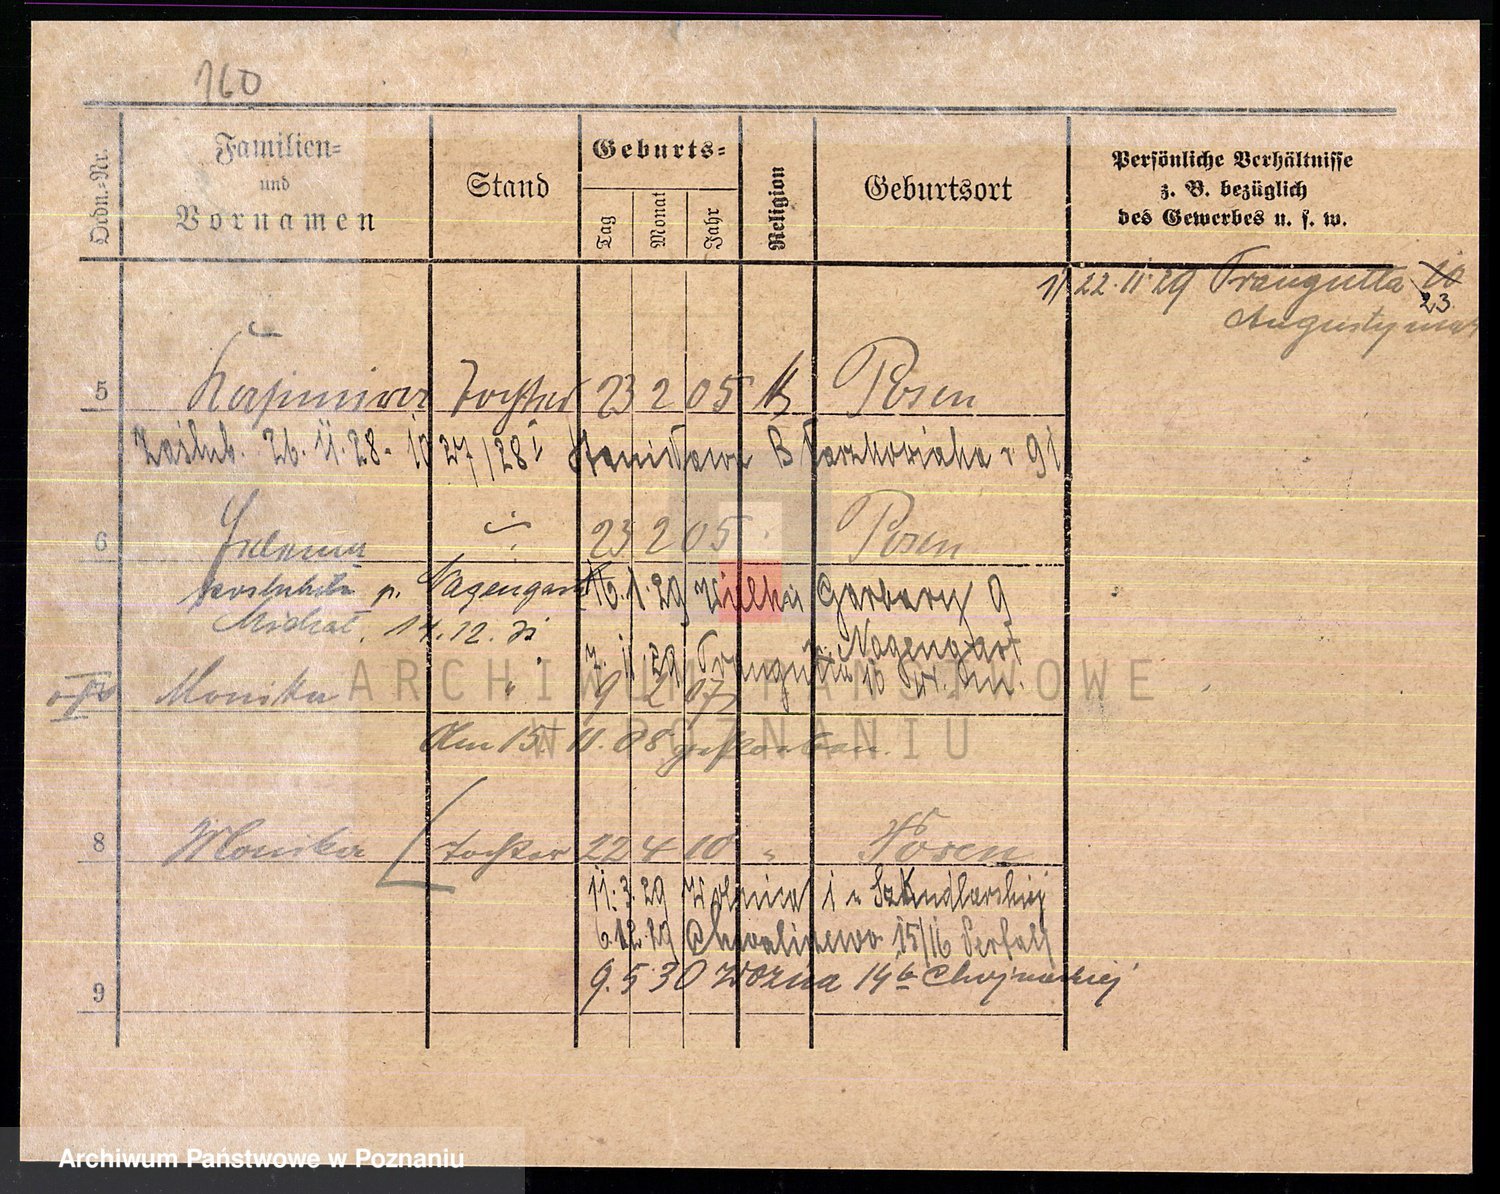 160
Ordn.-Nr.
Familien-
und
Vornamen
Stand
Geburts-
Tag
Monat
Jahr
Religion
Geburtsort
Persönliche Verhältnisse
z. B. bezüglich
des Gewerbes u. s. w.
1) 22.11.29 Traugutta 10
23
5 Kasimira Tochter 23 2 05 K Posen
Zaślub. 26. 11. 28. Stanisława
6 Helena 23 2 05 Posen
p. Nagengast 16.1.29 Wielkie Garbary 9
Michał 14.12.
Nagengast
7. 11 29 Traugutta 10
Monika " 9 2 07
Am 15. 11. 08 gestorben.
8 Monika Tochter 22 4 10 " Posen
11. 3. 29 Woźnica 1 u Szkudlarskiej
6.12.29 Chwaliszewo 15/16
9 9.5.30 Woźna 14b Chojnackiej
ARCHIWUM PAŃSTWOWE
W POZNANIU
Archiwum Państwowe w Poznaniu